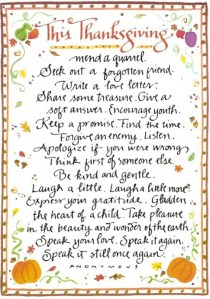 This Thanksgiving
mend a quarrel.
Seek out a forgotten friend.
Write a love letter.
Share some treasure. Give a
soft answer. Encourage youth.
Keep a promise. Find the time.
Forgive an enemy. Listen.
Apologize if you were wrong.
Think first of someone else.
Be kind and gentle.
Laugh a little. Laugh a little more.
Express your gratitude. Gladden
the heart of a child. Take pleasure
in the beauty and wonder of the earth.
Speak your love. Speak it again.
Speak it still once again.
ANONYMOUS